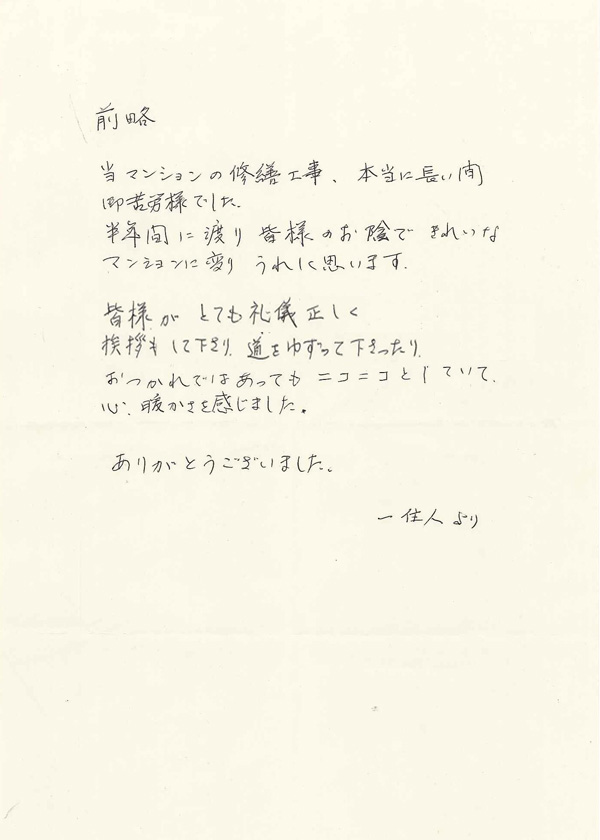 前略
当マンションの修繕工事、本当に長い間
御苦労様でした。
半年間に渡り 皆様のお陰で きれいな
マンションに変り うれしく思います。
皆様が とても礼儀正しく
挨拶もして下さり、道をゆずって下さったり、
おつかれではあっても ニコニコとしていて、
心、暖かさを感じました。
ありがとうございました。
一住人より